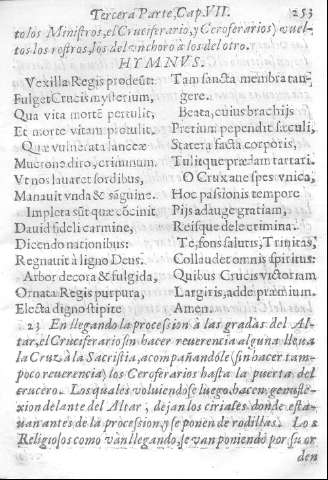 Tercera Parte, Cap. VII. 253
to los Ministros, el Cruciferario, y Ceroferarios) vuel-
tos los rostros, los del vn choro à los del otro.
HYMNVS.
Vexilla Regis prodeũt.
Fulget Crucis mysterium,
Qua vita mortẽ pertulit,
Et morte vitam protulit.
Quæ vulnerata lanceæ
Mucrone diro, criminum
Vt nos lauaret sordibus,
Manauit vnda & sãguine.
Impleta sũt quæ cõcinit
Dauid fideli carmine,
Dicendo nationibus:
Regnauit à ligno Deus.
Arbor decora & fulgida,
Ornata Regis purpura,
Electa digno stipite
Tam sancta membra tan-
gere.
Beata, cuius brachijs
Pretium pependit sæculi,
Statera facta corporis,
Tulitque prædam tartari.
O Crux aue spes vnica,
Hoc passionis tempore
Pijs adauge gratiam,
Reisque dele crimina.
Te, fons salutis, Trinitas,
Collaudet omnis spiritus:
Quibus Crucis victoriam
Largiris, adde præmium.
Amen.
23 En llegando la procession à las gradas del Al-
tar, el Cruciferario sin hacer reuerencia alguna lleua
la Cruz à la Sacristia, acompañandóle (sin hacer tam-
poco reuerencia) los Ceroferarios hasta la puerta del
crucero. Los quales voluiendose luego, hacen genufle-
xion delante del Altar; dejan los ciriales donde esta-
uan antes de la procession, y se ponen de rodillas. Los
Religiosos como van llegando, se van poniendo por su or
den